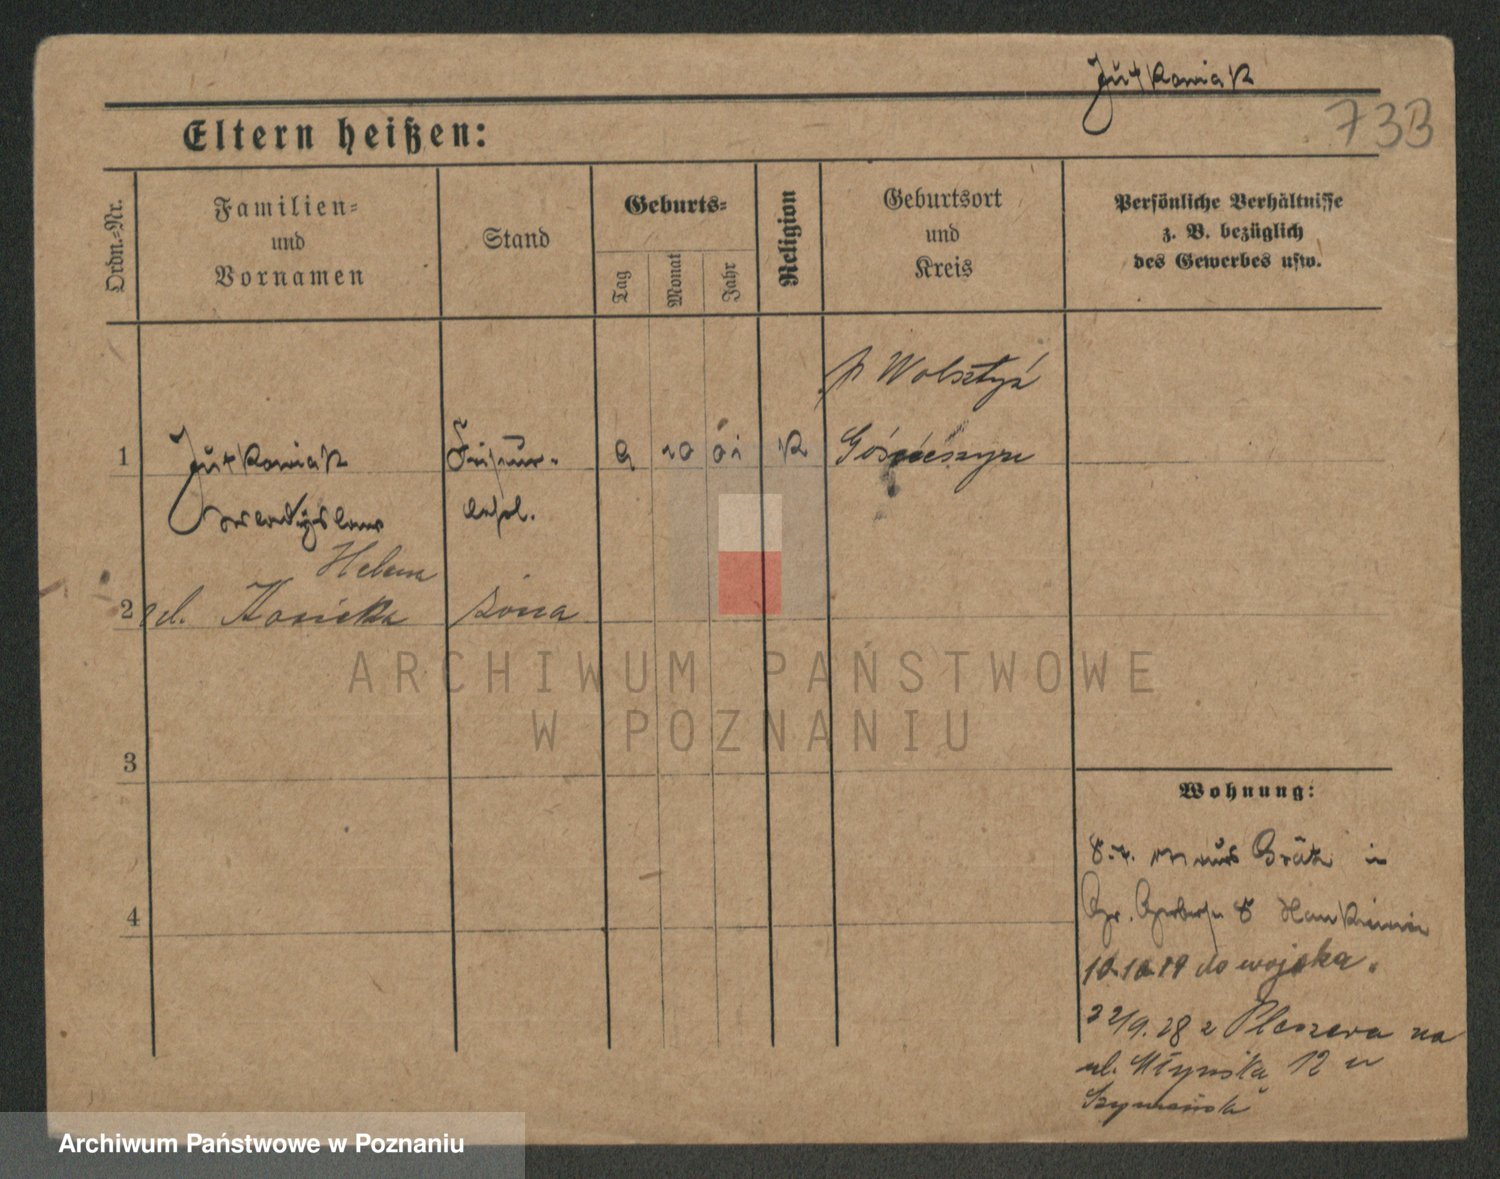 Jutkowiak
733
Eltern heißen:
Ordn.-Nr.
Familien-
und
Vornamen
Stand
Geburts-
Tag
Monat
Jahr
Religion
Geburtsort
und
Kreis
Persönliche Verhältnisse
z. B. bezüglich
des Gewerbes usw.
p Wolsztyń
1
Jutkowiak
Friseur-
9
10
01
K
Gościeszyn
Wladyslaus
Helena
2
Kosicka
żona
3
4
Wohnung:
aus Grätz in
Gr. Gerberstr 8
10.10.19 do wojska.
22/9.28 z Pleszewa na
ul. Młyńska 12 u
Szymańska
ARCHIWUM PAŃSTWOWE
W POZNANIU
Archiwum Państwowe w Poznaniu